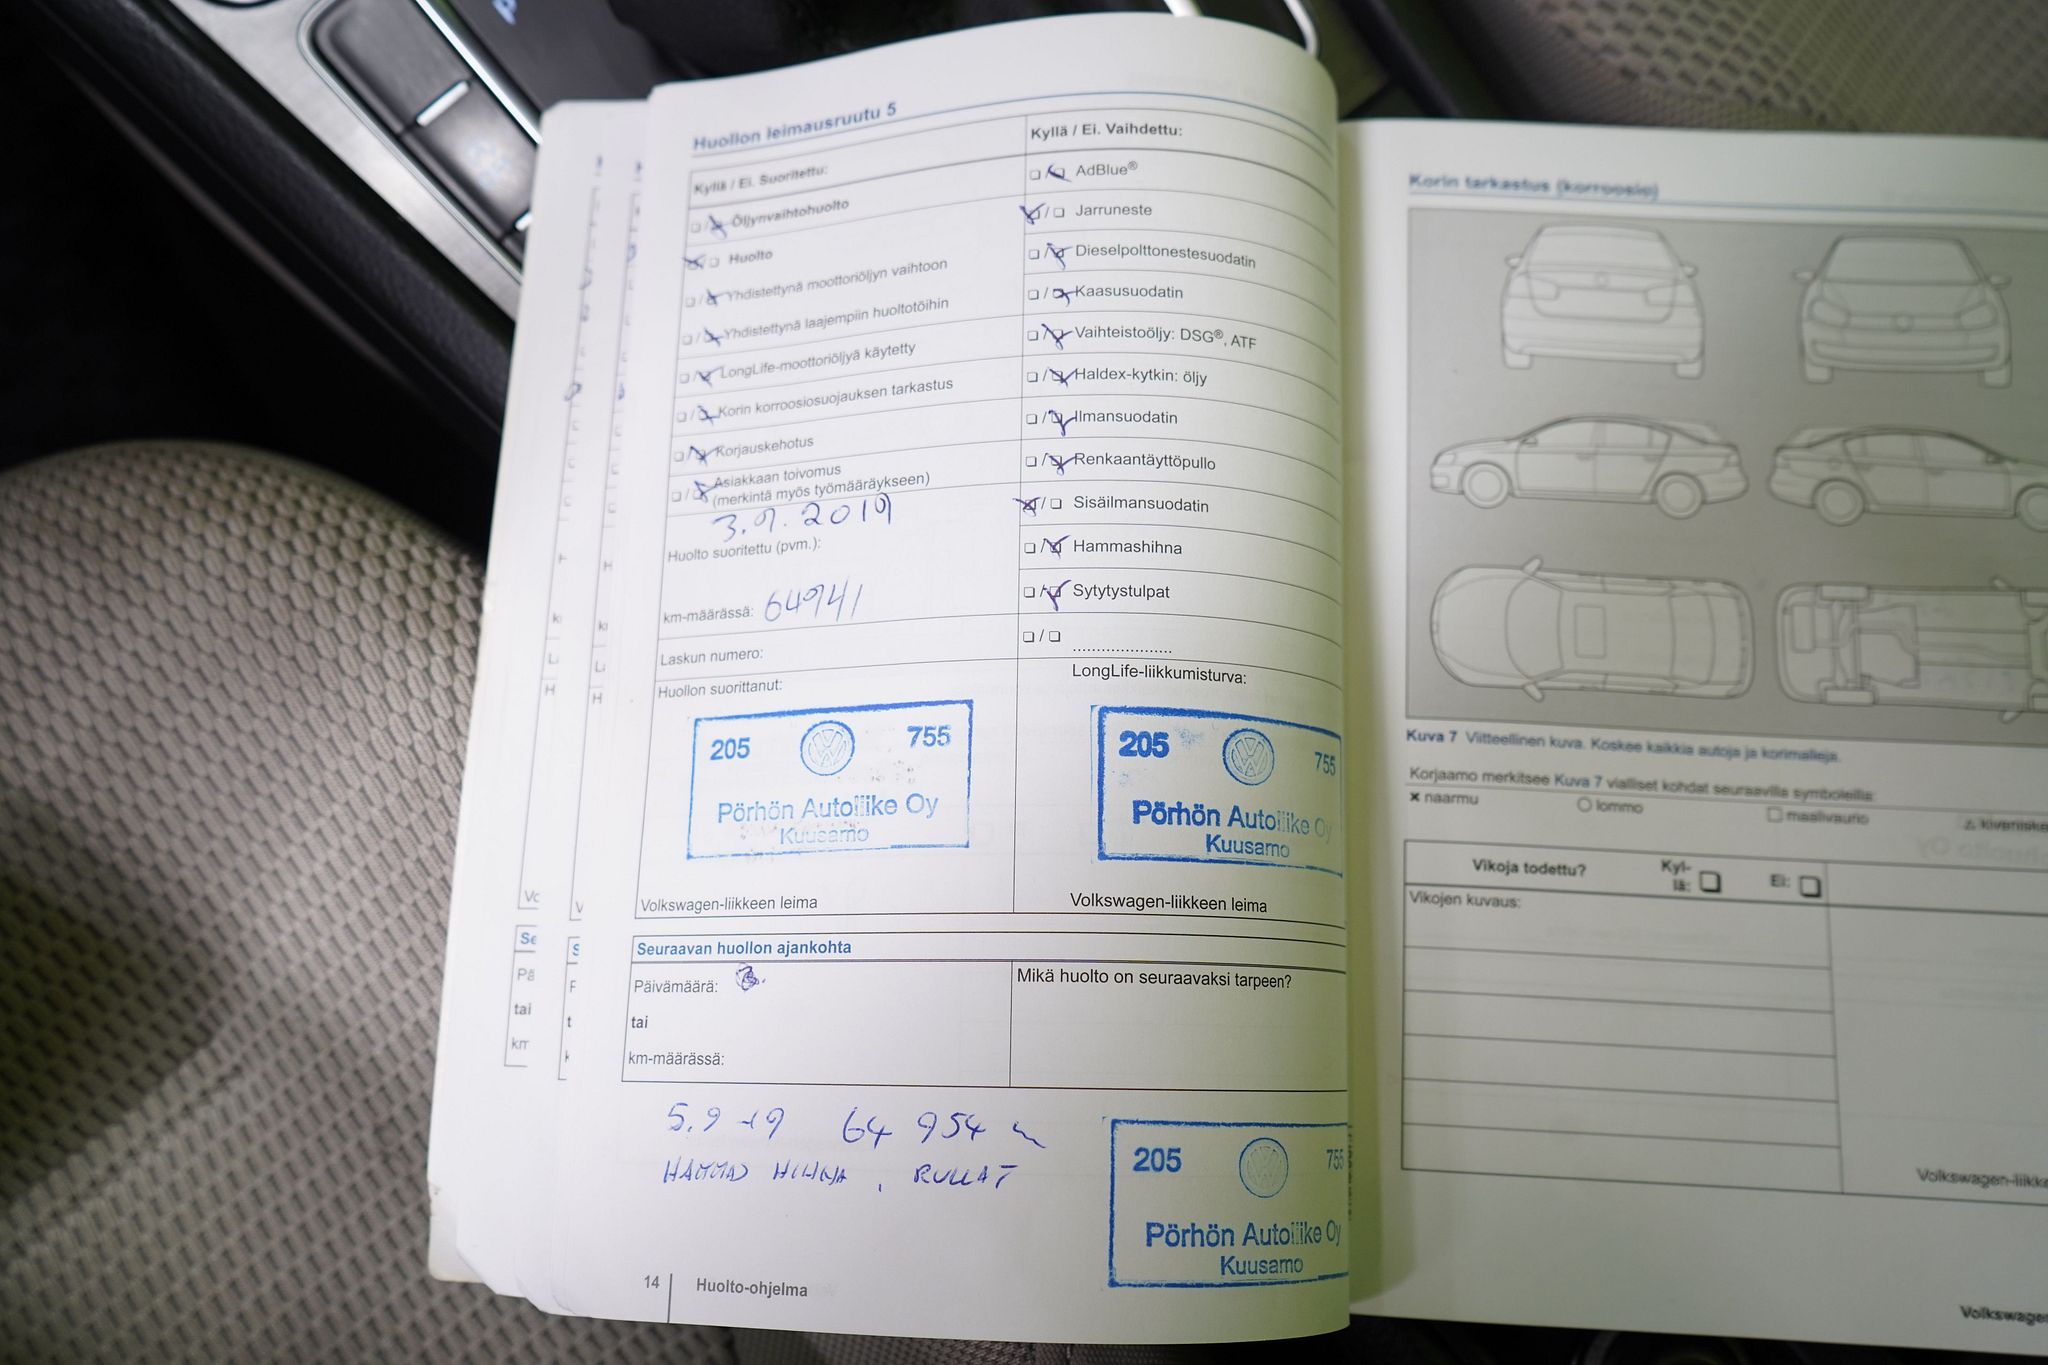 Huollon leimausruutu 5
Kyllä / Ei. Suoritettu:
Öljynvaihtohuolto
Huolto
Yhdistettynä moottoriöljyn vaihtoon
Yhdistettynä laajempiin huoltotöihin
LongLife-moottoriöljyä käytetty
Korin korroosiosuojauksen tarkastus
Korjauskehotus
Asiakkaan toivomus
(merkintä myös työmääräykseen)
3.9.2019
Huolto suoritettu (pvm.):
km-määrässä: 64941
Laskun numero:
Huollon suorittanut:
205 755
Pörhön Autoliike Oy
Kuusamo
Volkswagen-liikkeen leima
Kyllä / Ei. Vaihdettu:
AdBlue®
Jarruneste
Dieselpolttonestesuodatin
Kaasusuodatin
Vaihteistoöljy: DSG®, ATF
Haldex-kytkin: öljy
Ilmansuodatin
Renkaantäyttöpullo
Sisäilmansuodatin
Hammashihna
Sytytystulpat
.....................
LongLife-liikkumisturva:
205 755
Pörhön Autoliike Oy
Kuusamo
Volkswagen-liikkeen leima
Seuraavan huollon ajankohta
Päivämäärä:
tai
km-määrässä:
Mikä huolto on seuraavaksi tarpeen?
5.9-19 64 954
HAMMAS HIHNA, RULLAT
205 755
Pörhön Autoliike Oy
Kuusamo
14 Huolto-ohjelma
Korin tarkastus (korroosio)
Kuva 7 Viitteellinen kuva. Koskee kaikkia autoja ja korimalleja.
Korjaamo merkitsee Kuva 7 vialliset kohdat seuraavilla symboleilla:
naarmu lommo maalivaurio
Vikoja todettu? Kyl-
lä: Ei:
Vikojen kuvaus: